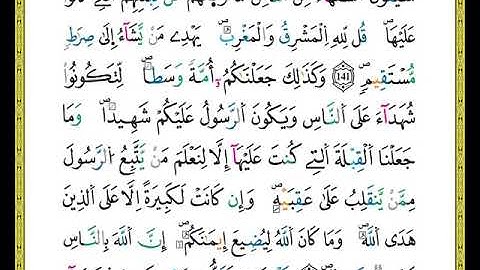 عَلَيْهَاۖ قُل لِّلهِ اِ۬لْمَشْرِقُ وَالْمَغْرِبُۖ يَهْدِے مَنْ يَّشَآءُ اِلَىٰ صِرَٰطٖ
مُّسْتَقِيمٖۖ ١٤١ وَكَذَٰلِكَ جَعَلْنَٰكُمُۥٓ أُمَّةٗ وَسَطاٗۖ لِّتَكُونُواْ
شُهَدَآءَ عَلَى اَ۬لنَّاسِ وَيَكُونَ اَ۬لرَّسُولُ عَلَيْكُمْ شَهِيداٗۖ وَمَا
جَعَلْنَا اَ۬لْقِبْلَةَ اَ۬لتِے كُنتَ عَلَيْهَآ إِلَّا لِنَعْلَمَ مَنْ يَّتَّبِعُ اُ۬لرَّسُولَ
مِمَّنْ يَّنقَلِبُ عَلَىٰ عَقِبَيْهِۖ وَإِن كَانَتْ لَكَبِيرَةً اِلَّا عَلَى اَ۬لذِينَ
هَدَى اَ۬للَّهُۖ وَمَا كَانَ اَ۬للَّهُ لِيُضِيعَ إِيمَٰنَكُمُۥٓۖ إِنَّ اَ۬للَّهَ بِالنَّاسِ